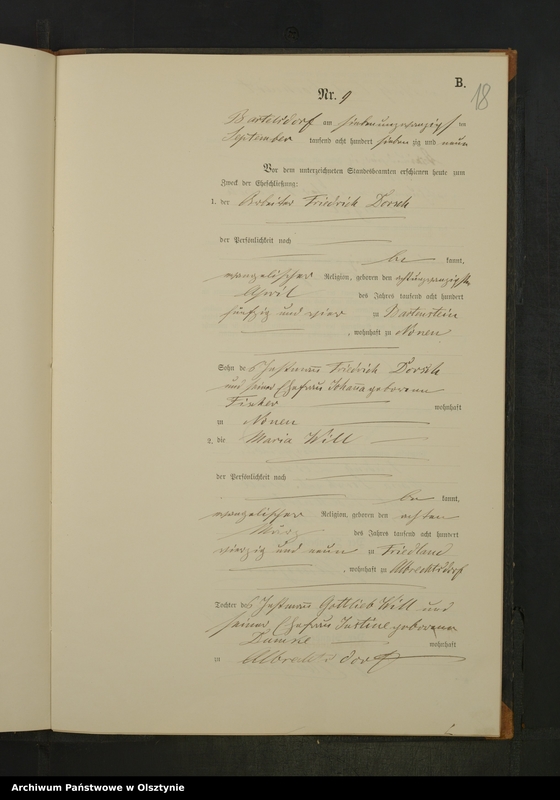 B.
18
Nr. 9
Bartelsdorf am siebenundzwanzigsten
September tausend acht hundert siebenzig und neun
Vor dem unterzeichneten Standesbeamten erschienen heute zum
Zweck der Eheschließung:
1. der Arbeiter Friedrich Dorsch
der Persönlichkeit nach
be kannt,
evangelischer Religion, geboren den achtundzwanzigsten
April des Jahres tausend acht hundert
fünfzig und vier zu Bartenstein
, wohnhaft zu Nonen
Sohn des Instmann Friedrich Dorsch
und seiner Ehefrau Johanna geborenen
wohnhaft
zu Nonen
2. die Maria Will
der Persönlichkeit nach
be kannt,
evangelischer Religion, geboren den achten
März des Jahres tausend acht hundert
vierzig und neun zu Friedland
, wohnhaft zu Albrechtsdorf
Tochter des Instmann Gottlieb Will und
seiner Ehefrau Justine geborenen
wohnhaft
zu Albrechtsdorf
Archiwum Państwowe w Olsztynie